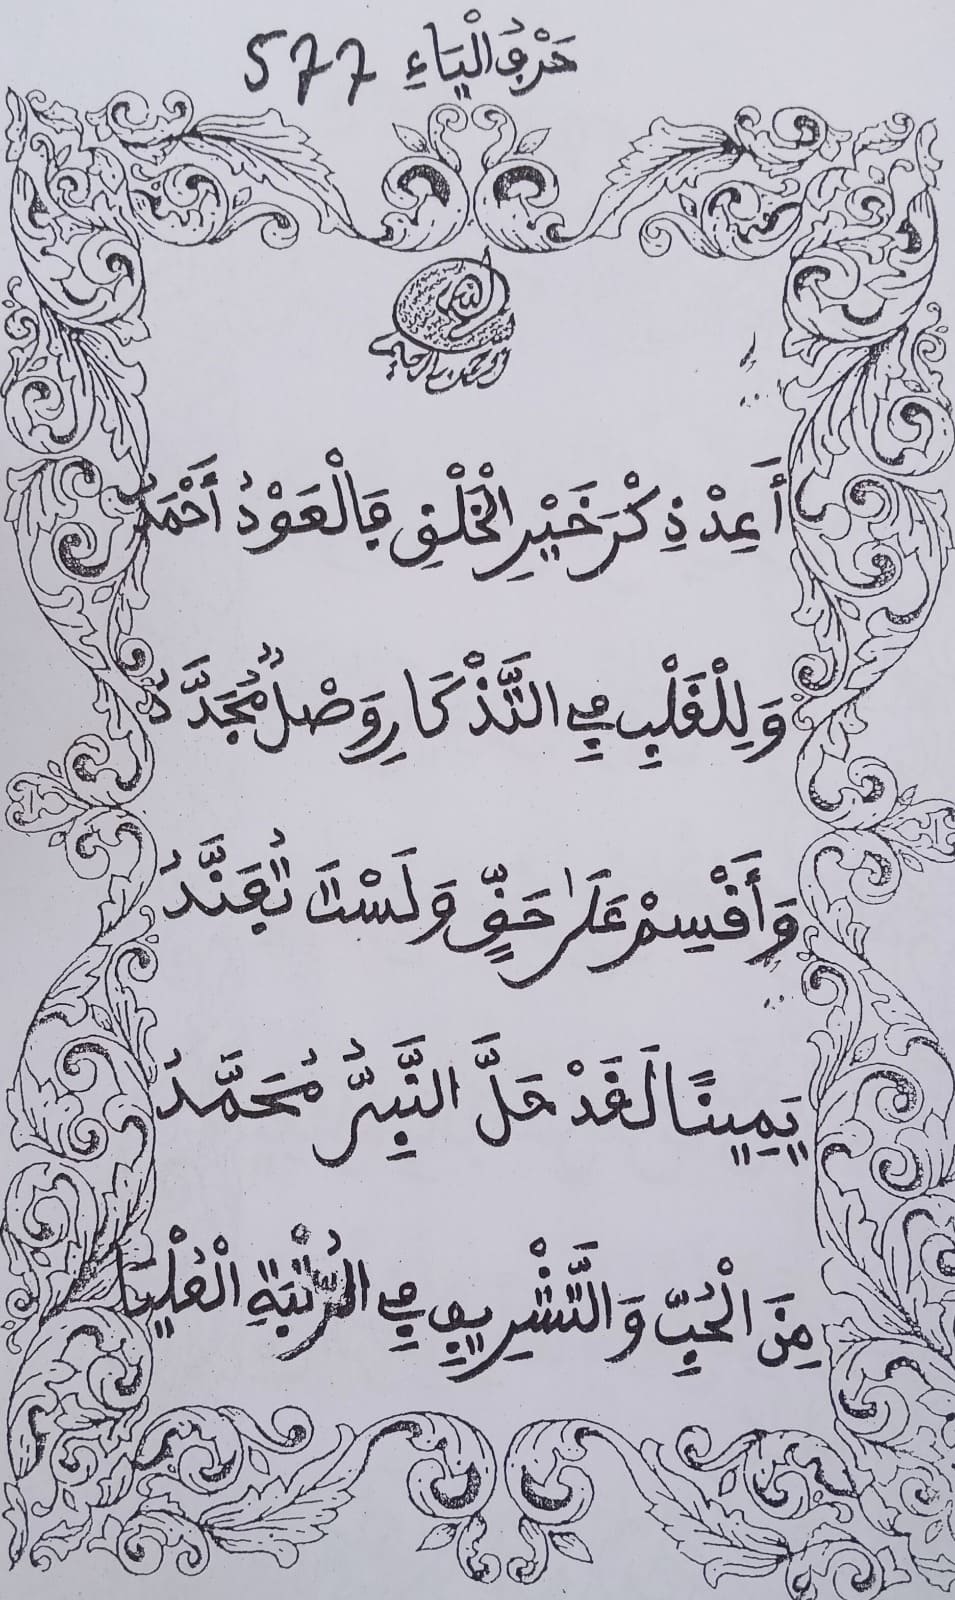 حَرْفُ الْيَاءِ 577
أَعِدْ ذِكْرَ خَيْرِ الْخَلْقِ فَالْعَوْدُ أَحْمَدُ
وَلِلْقَلْبِ فِي التَّذْكَارِ وَصْلٌ مُجَدَّدُ
وَأَقْسِمْ عَلَى حَقٍّ وَلَسْتَ تُفَنَّدُ
يَمِينًا لَقَدْ حَلَّ النَّبِيُّ مُحَمَّدُ
مِنَ الْحُبِّ وَالتَّشْرِيفِ فِي الرُّتْبَةِ الْعُلْيَا